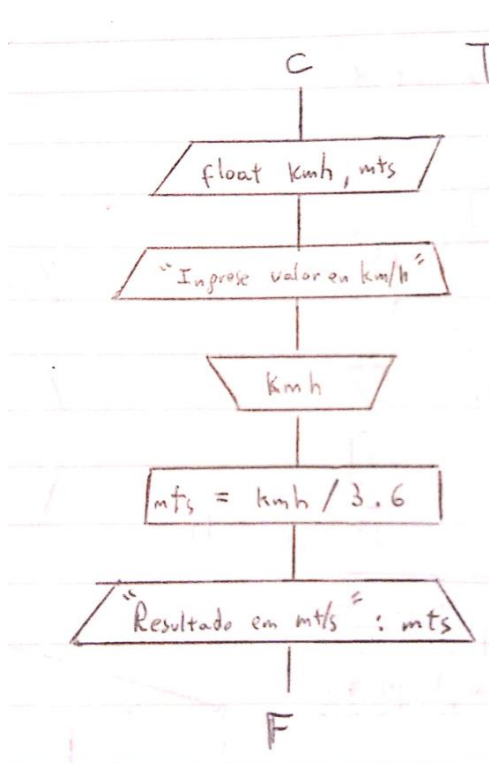 C
T
float kmh, mts
"Ingrese valor en km/h"
kmh
mts = kmh / 3.6
"Resultado em mt/s" : mts
F